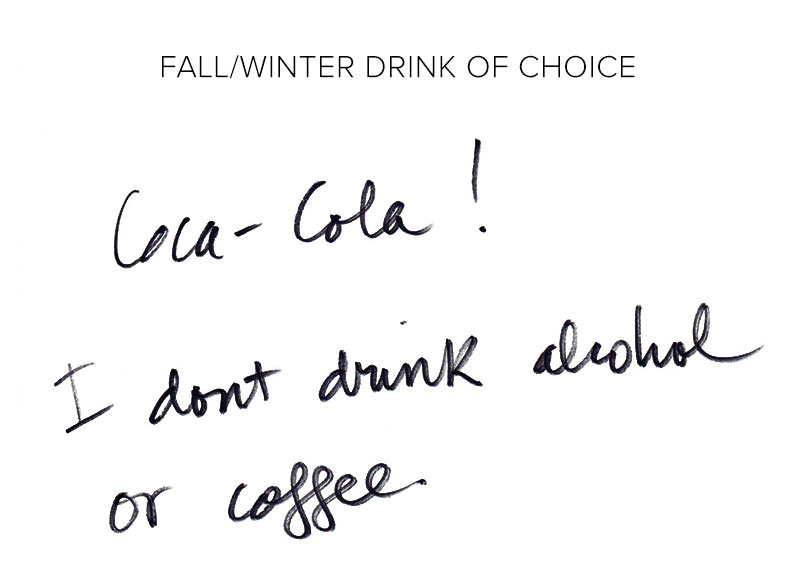 FALL/WINTER DRINK OF CHOICE
Coca-Cola!
I dont drink alcohol
or coffee.